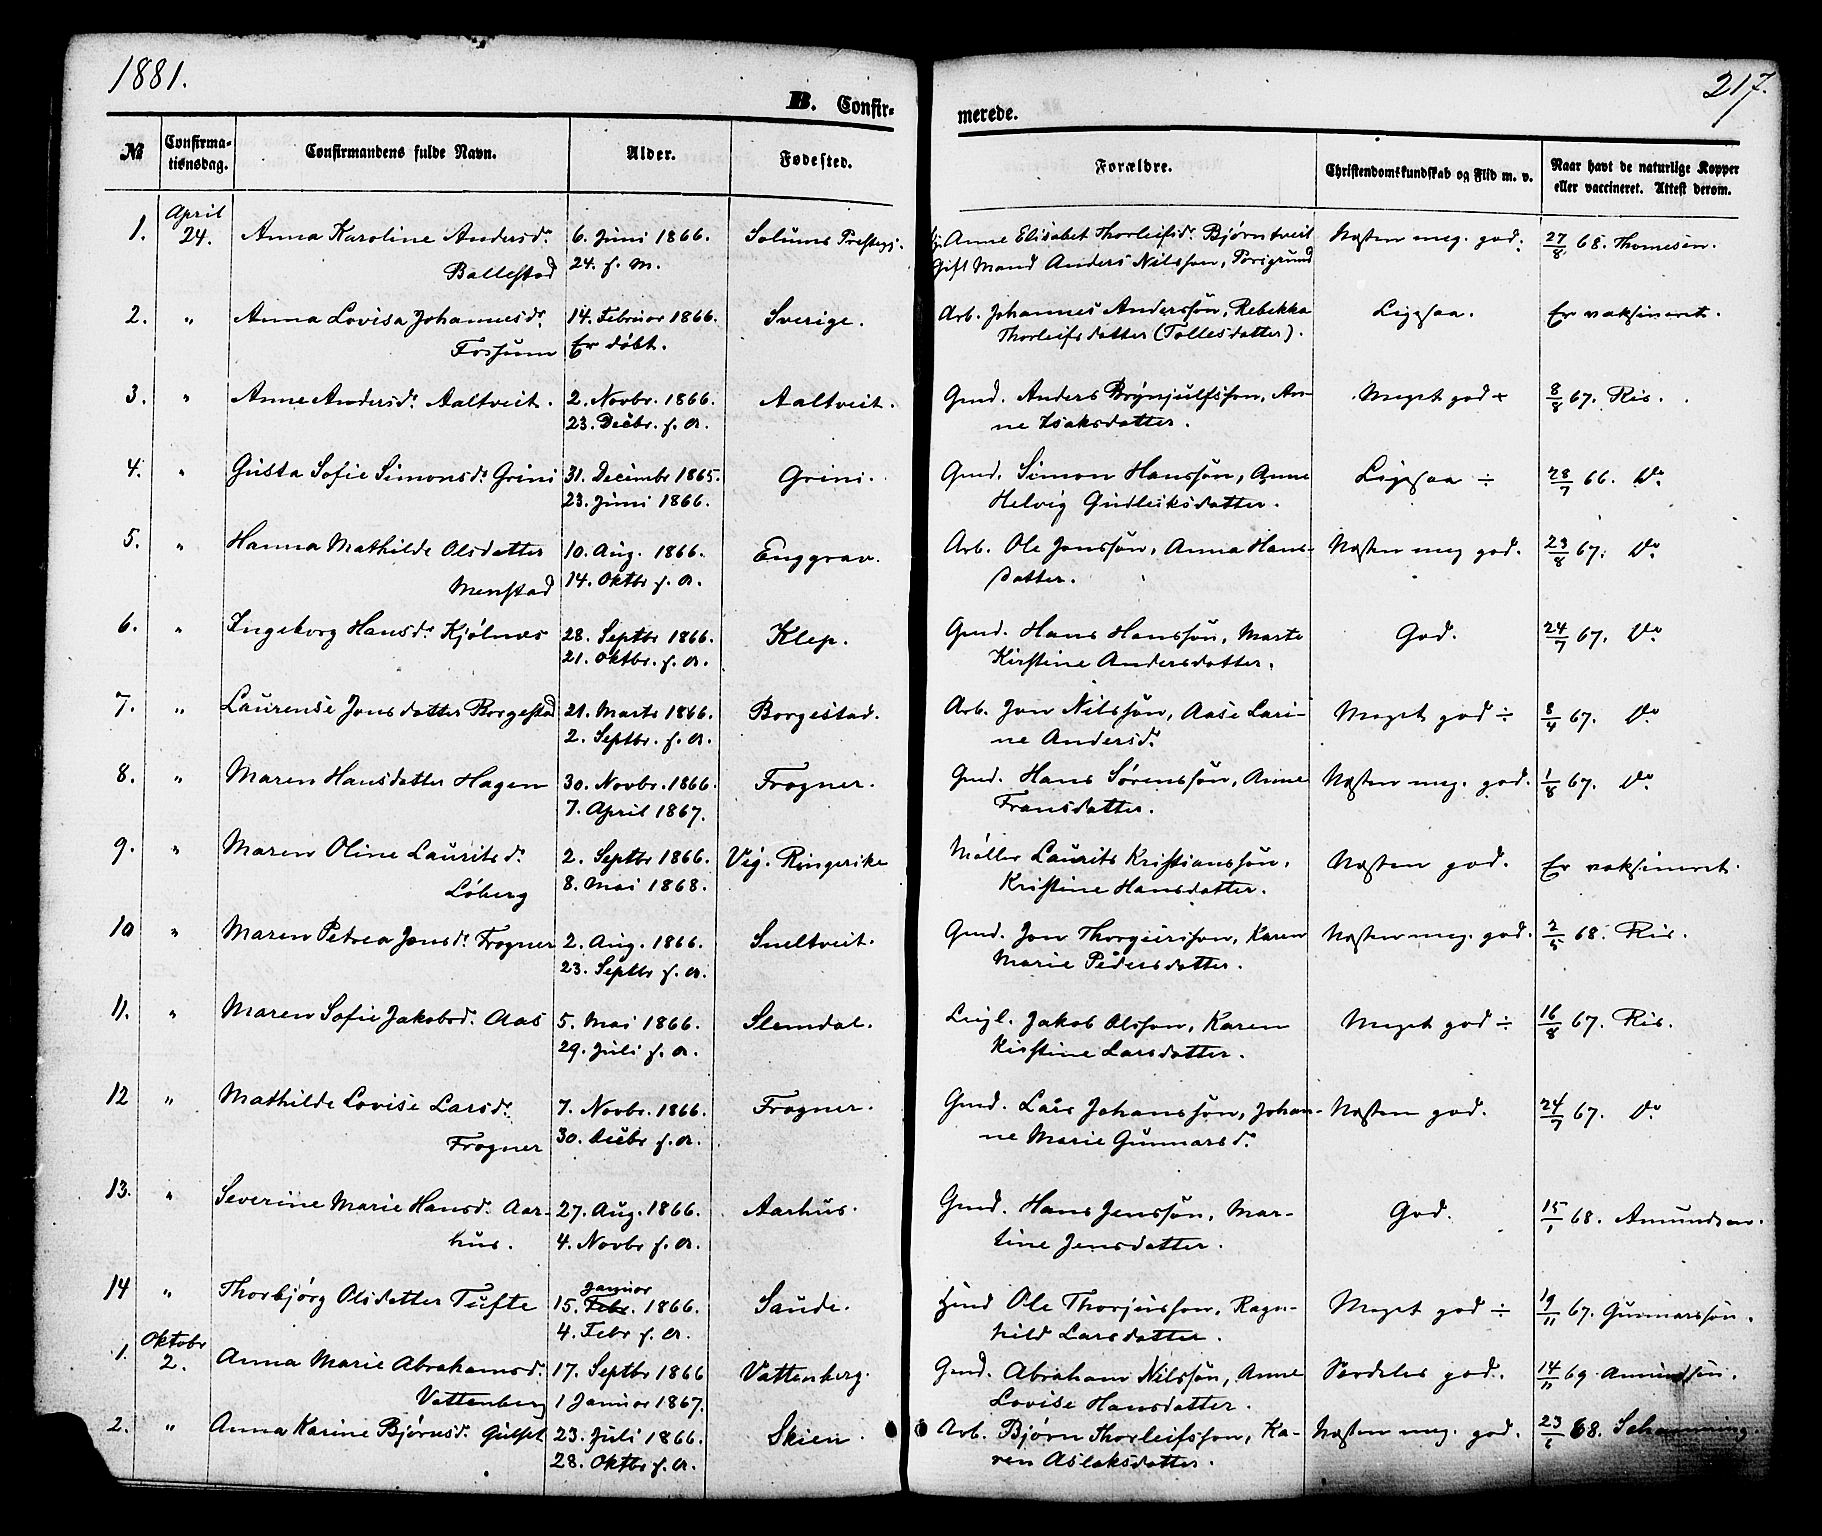 1881.
217.
B. Confir-
merede.
№
Confirma-
tionsdag.
Confirmandens fulde Navn.
Alder.
Fødested.
Forældre.
Christendomskundskab og Flid m. v.
Naar havt de naturlige Kopper
eller vaccineret. Attest derom.
1. April 24. Anna Karoline Andersdr. 6. Juni 1866. Solums Prestegj. Anne Elisabet Thorleifsdr. Bjørntveit Næsten meg. god. 27/8 68. Thomesen.
Ballestad 24. s. M. Gift Mand Anders Nilsson, Porsgrund
2. " Anna Lovisa Johannesdr. 14. Februar 1866. Sverige. Arb. Johannes Andersson, Rebekka Ligesaa. Er vaksineret.
Fossum Er døbt. Thorleifsdatter (Tollesdatter).
3. " Anne Andersdr. Aaltveit. 2. Novbr. 1866. Aaltveit. Gmd. Anders Brynjulfsson, An- Meget god + 8/8 67. Ris.
23. Decbr. s. A. ne Isaksdatter.
4. " Gusta Sofie Simonsdr. Grini 31. Decembr 1865. Grini. Gmd. Simon Hansson, Anne Ligesaa ÷ 28/7 66. Do
23. Juni 1866. Helvig Gudleiksdatter.
5. " Hanna Mathilde Olsdatter 10. Aug. 1866. Enggrav. Arb. Ole Jonsson, Anna Hans- Næsten meg god. 23/8 67. Do
Menstad 14. Oktbr s. A. datter.
6. " Ingeborg Hansdr. Kjølnes 28. Septbr 1866. Klep. Gmd. Hans Hansson, Marte God. 24/7 67. Do
21. Oktbr. s. A. Kirstine Andersdatter.
7. " Laurense Jonsdatter Borgestad 21. Marts 1866. Borgestad. Arb. Jon Nilsson, Aase Lari- Meget god ÷ 8/4 67. Do
2. Septbr. s. A. ne Andersdr.
8. " Maren Hansdatter Hagen 30. Novbr. 1866. Frogner. Gmd. Hans Sørensson, Anne Næsten meg. god. 1/8 67. Do
7. April 1867. Fransdatter.
9. " Maren Oline Lauritsdr. 2. Septbr 1866. Vig. Ringerike Møller Laurits Kristiansson, Næsten god. Er vaksineret.
Løberg 8. Mai 1868. Kristine Hansdatter.
10 " Maren Petrea Jonsdr. Frogner 2. Aug. 1866. Sneltveit. Gmd. Jon Thorgeirsson, Karen Næsten meg. god. 2/5 68. Ris.
23. Septbr s. A. Marie Pedersdatter.
11. " Maren Sofie Jakobsd. Aas 5. Mai 1866. Slemdal. Leigl. Jakob Olsson, Karen Meget god ÷ 16/8 67. Ris.
29. Juli s. A. Kirstine Larsdatter.
12 " Mathilde Lovise Larsdr. 7. Novbr. 1866. Frogner. Gmd. Lars Johansson, Johan- Næsten god. 24/7 67. Do
Frogner 30. Decbr s. A. ne Marie Gunnarsdr.
13. " Severine Marie Hansd. Aar- 27. Aug. 1866. Aarhus. Gmd. Hans Jensson, Mar- God. 15/1 68. Amundsen.
hus. 4. Novbr s. A. tine Jensdatter.
14 " Thorbjørg Olsdatter Tufte 15. Febr. Januar 1866. Saude. Ole Thorjussson, Ragn- Meget god ÷ 19/11 67. Gunnarsson.
4. Febr s. A. hild Larsdatter.
1. Oktobr 2. Anna Marie Abrahamsd. 17. Septbr 1866 Vattenberg. Gmd. Abraham Nilsson, Anne Særdeles god. 14/11 69. Amundsen.
Vattenberg 1 Januar 1867. Lovise Hansdatter.
2. " Anna Karine Bjørnsdr. Gulset 23. Juli 1866. Skien. Arb. Bjørn Thorleifsson, Ka- Næsten meg. god. 23/6 68. Schanning.
28. Oktbr s. A. ren Aslaksdatter.